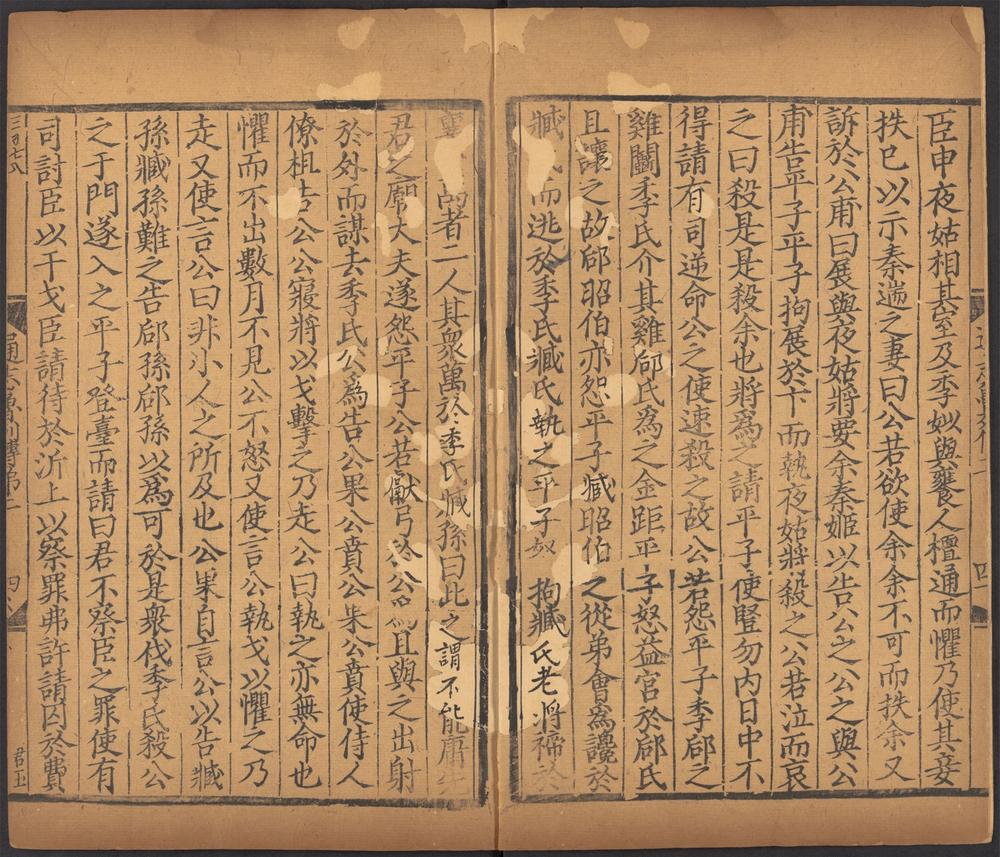 臣申夜姑相其室及季姒與饔人檀通而懼乃使其妾
抶已以示秦遄之妻曰公若欲使余余不可而抶余又
訴於公甫曰展與夜姑將要余秦姬以告公之公之與公
甫告平子平子拘展於卞而執夜姑將殺之公若泣而哀
之曰殺是是殺余也將爲之請平子使豎勿内日中不
得請有司逆命公之使速殺之故公若怨平子季郈之
雞鬬季氏介其雞郈氏爲之金距平子怒益宮於郈氏
且讓之故郈昭伯亦怨平子臧昭伯之從弟會爲讒於
臧氏而逃於季氏臧氏執之平子怒拘臧氏老將禘於
萬者二人其衆萬於季氏臧孫曰此之謂不能庸先
君之廟大夫遂怨平子公若獻弓於公爲且與之出射
於外而謀去季氏公爲告公果公賁公果公賁使侍人
僚柤告公公寢將以戈擊之乃走公曰執之亦無命也
懼而不出數月不見公不怒又使言公執戈以懼之乃
走又使言公曰非小人之所及也公果自言公以告臧
孫臧孫難之告郈孫郈孫以爲可於是衆伐季氏殺公
之于門遂入之平子登臺而請曰君不察臣之罪使有
司討臣以干戈臣請待於沂上以察罪弗許請囚於費
三百七八
通志魯列傳第一
四
君玉